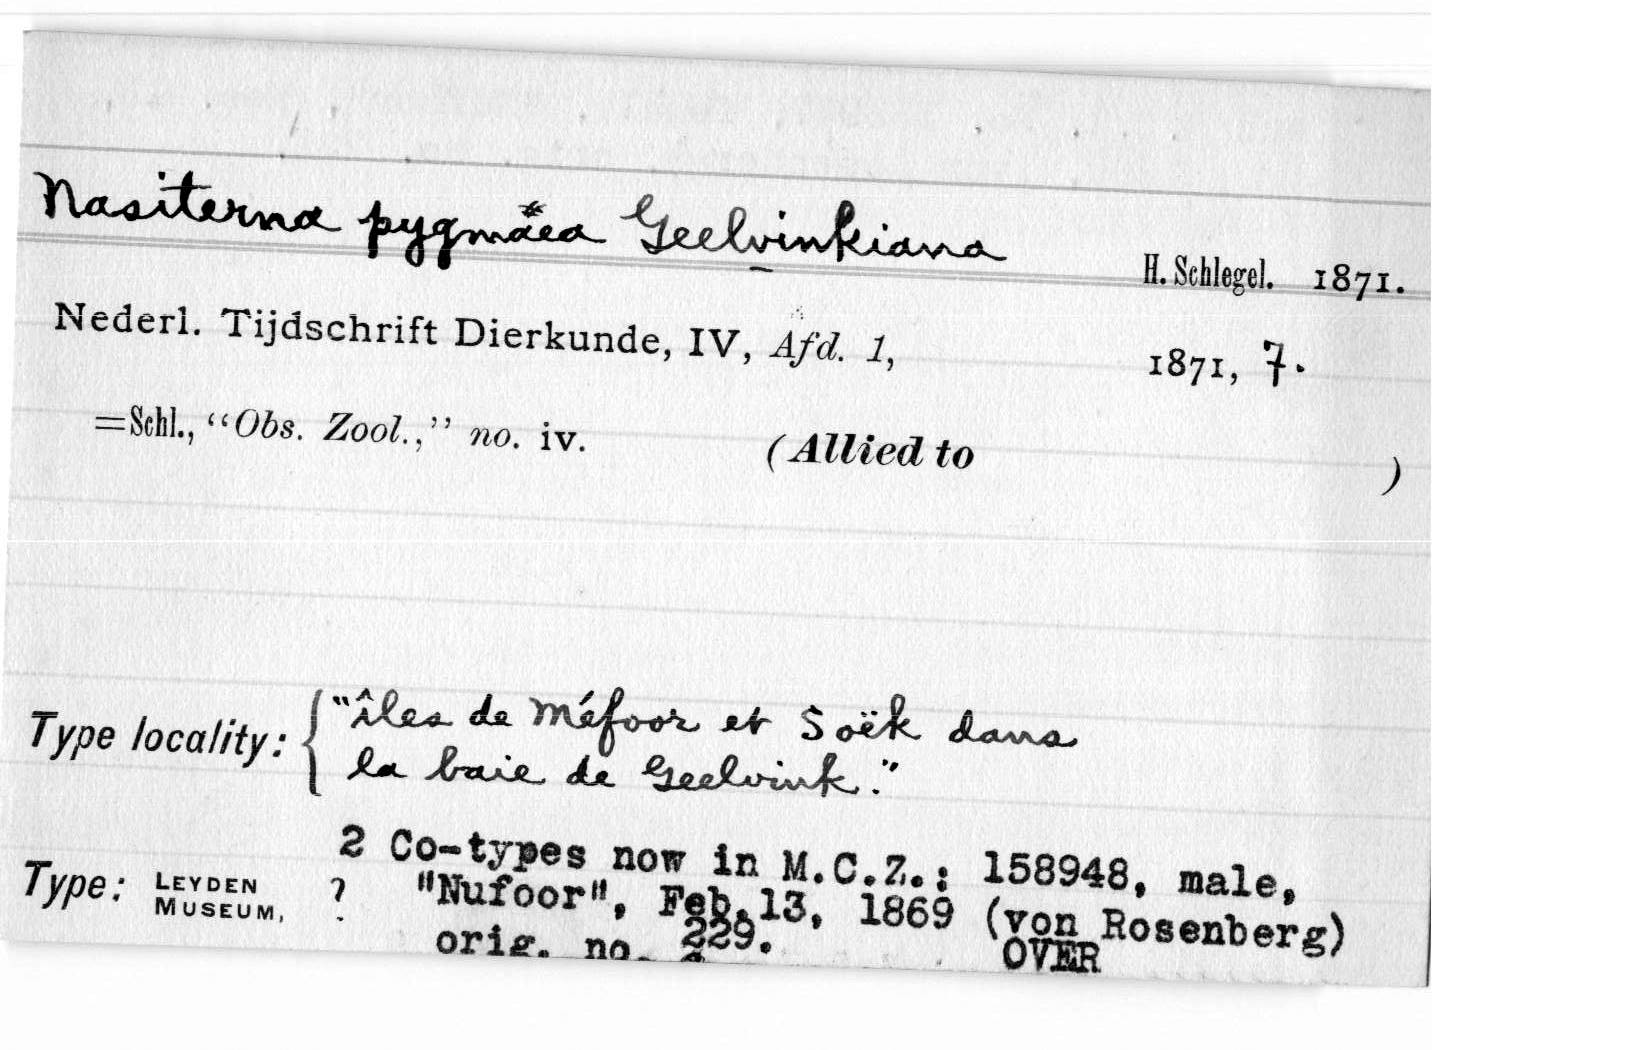 Nasiterna pygmæa Geelvinkiana
H. Schlegel. 1871.
Nederl. Tijdschrift Dierkunde, IV, Afd. 1, 1871, 7.
=Schl., "Obs. Zool.," no. iv. (Allied to )
Type locality: { "îles de Méfoor et Soëk dans
la baie de Geelvink."
2 Co-types now in M.C.Z.: 158948, male,
Type: LEYDEN MUSEUM, ? "Nufoor", Feb. 13, 1869 (von Rosenberg)
orig. no. 229. OVER